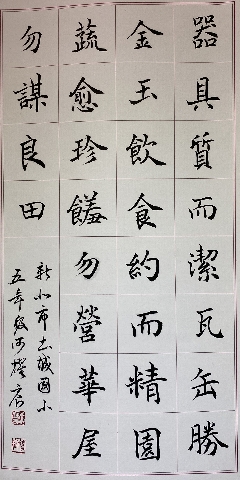 器具質而潔瓦缶勝
金玉飲食約而精園
蔬愈珍饈勿營華屋
勿謀良田
新北市土城國小
五年級